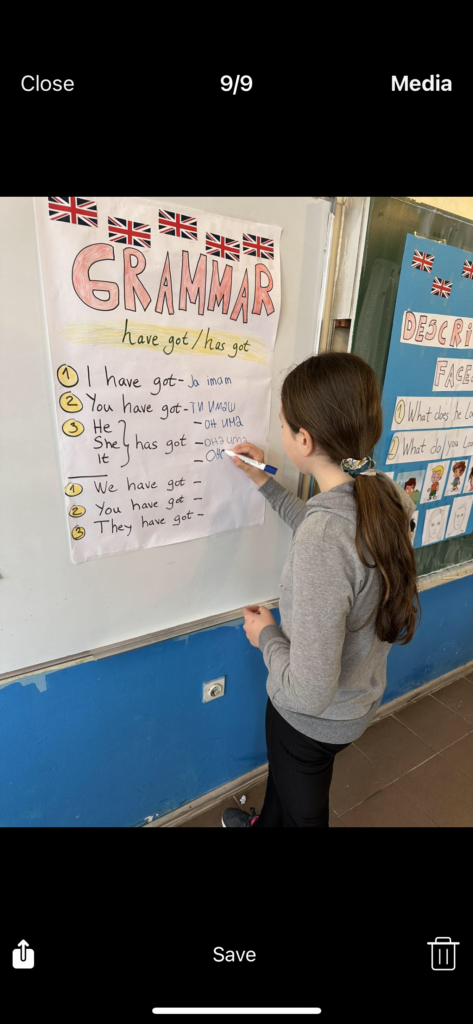 Close
9/9
Media
GRAMMAR
have got / has got
1 I have got - Ja imam
2 You have got - ТИ ИМАШ
3 He - ОН ИМА
She } has got - ОНА ИМА
It -
1 We have got -
2 You have got -
3 They have got -
DESCRI
FACE
1 What does he Lo
What do you Loo
Save